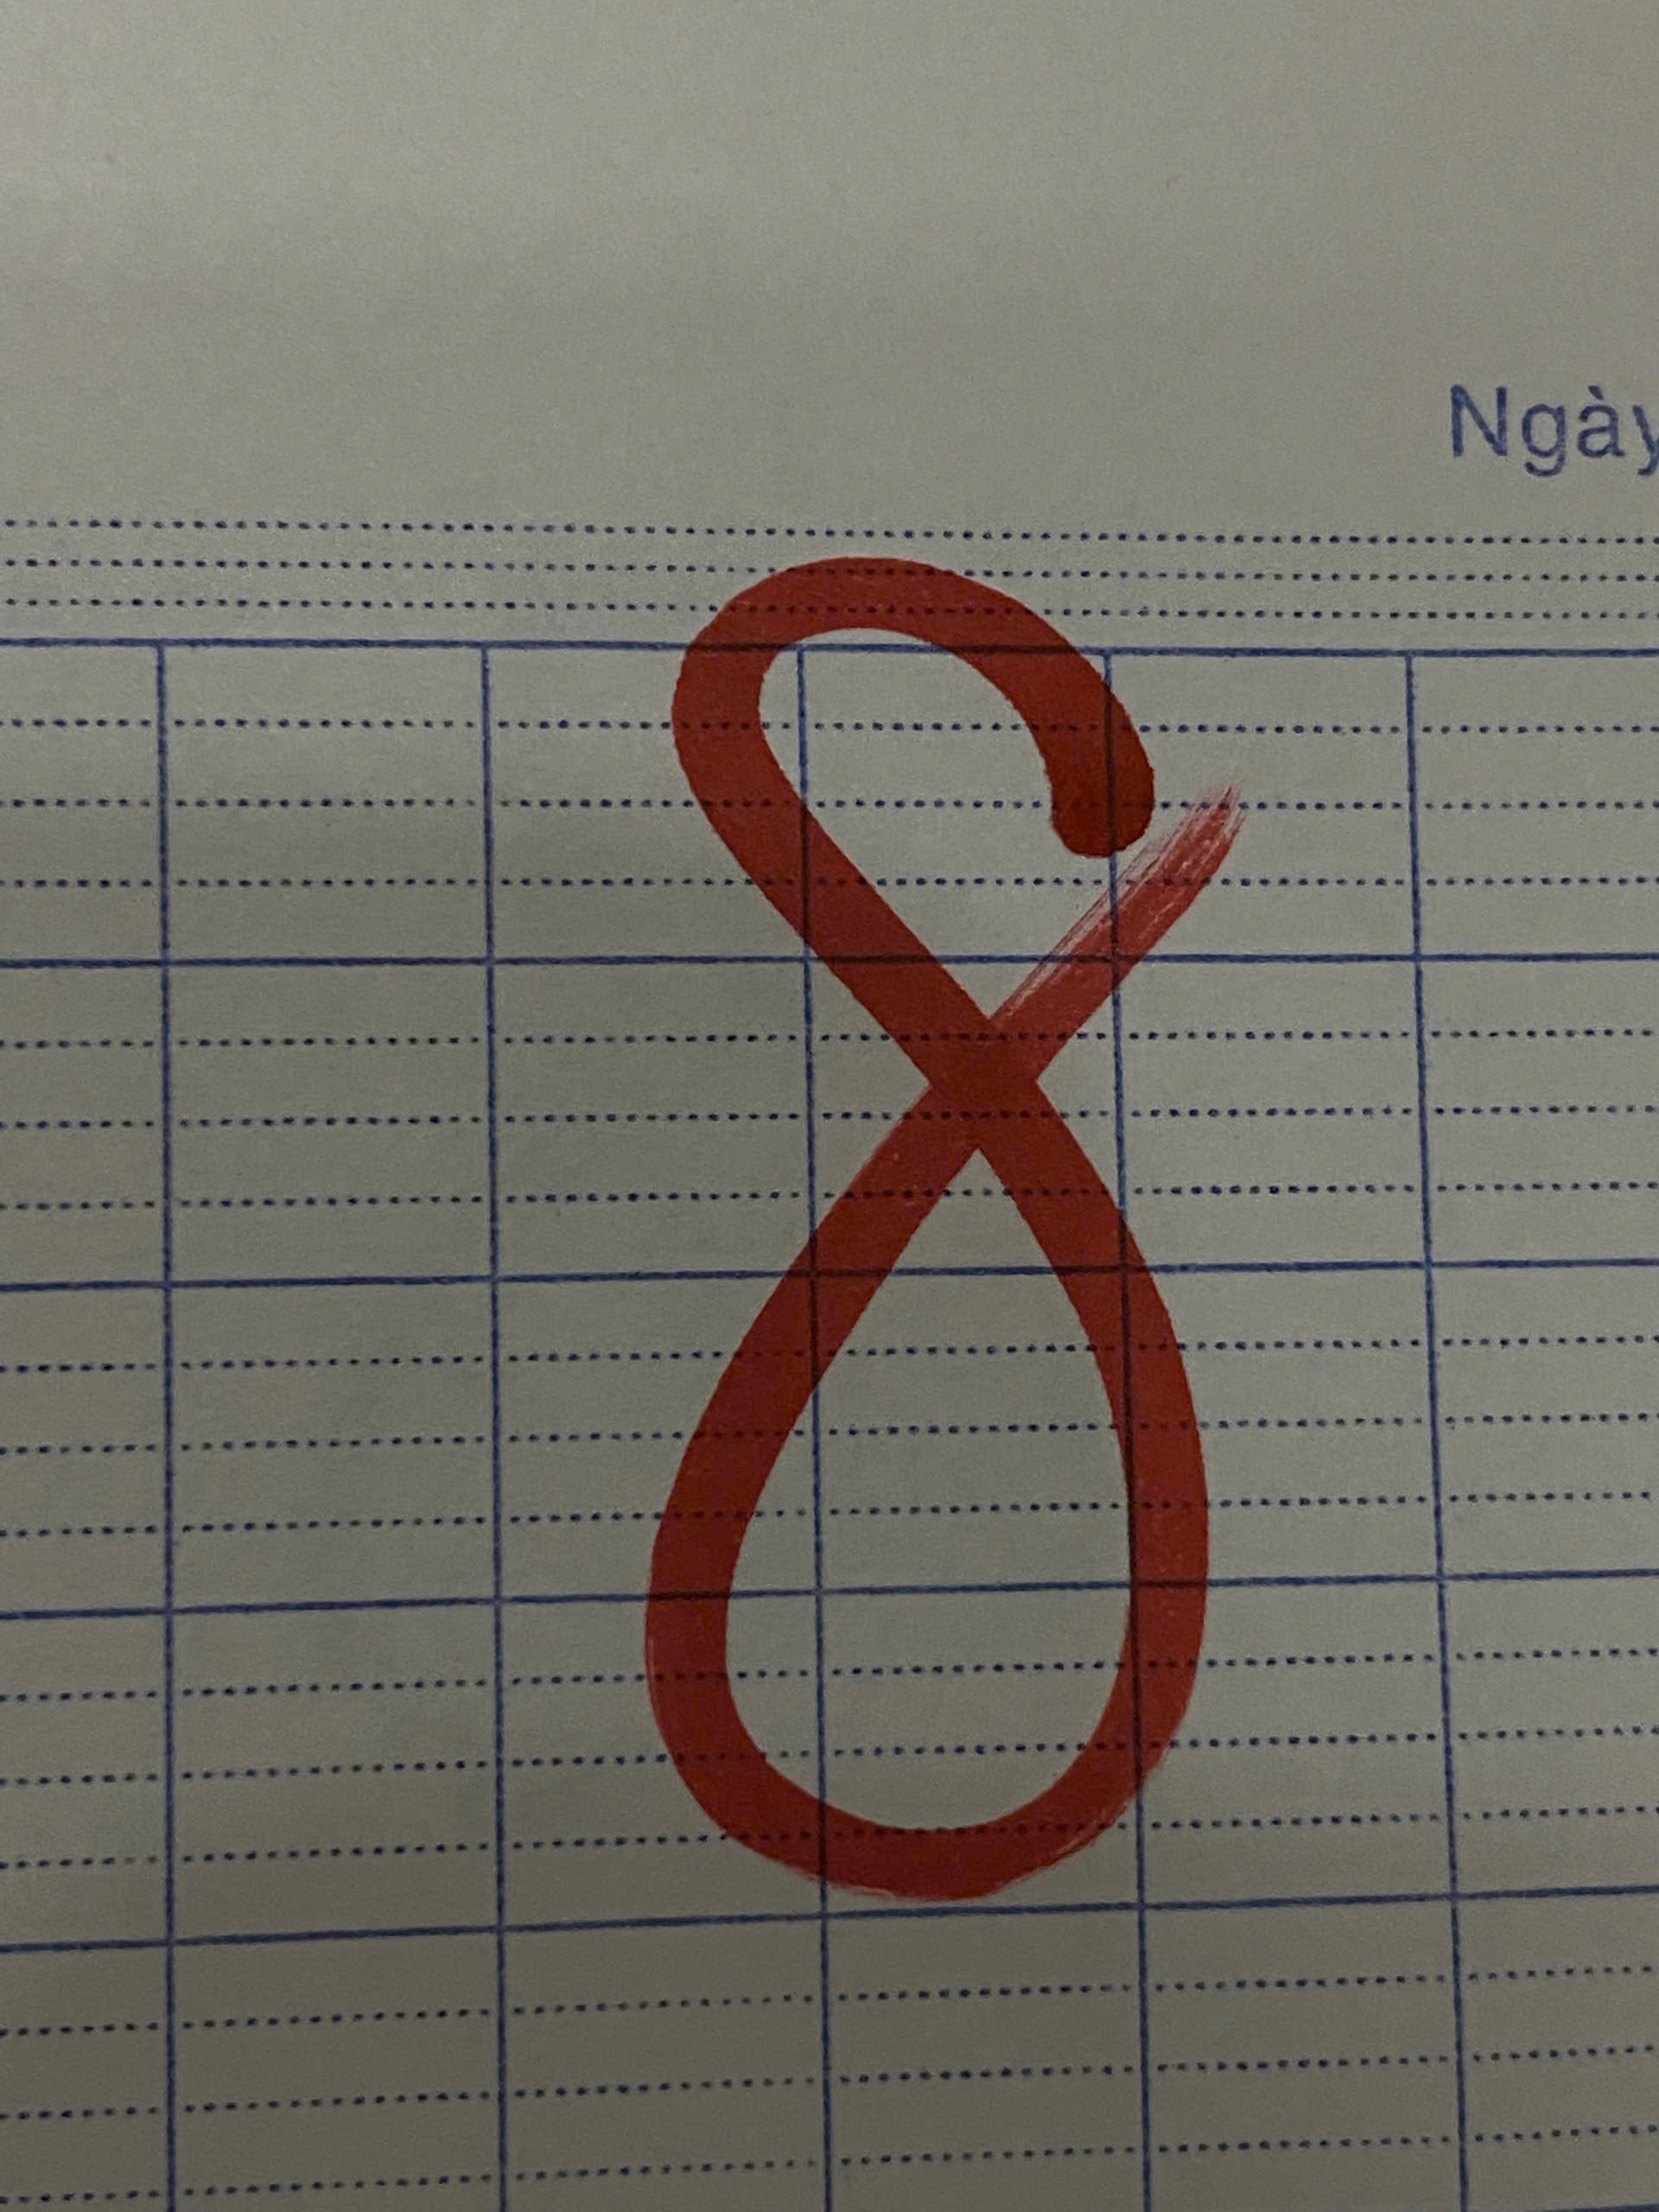 Ngày
8